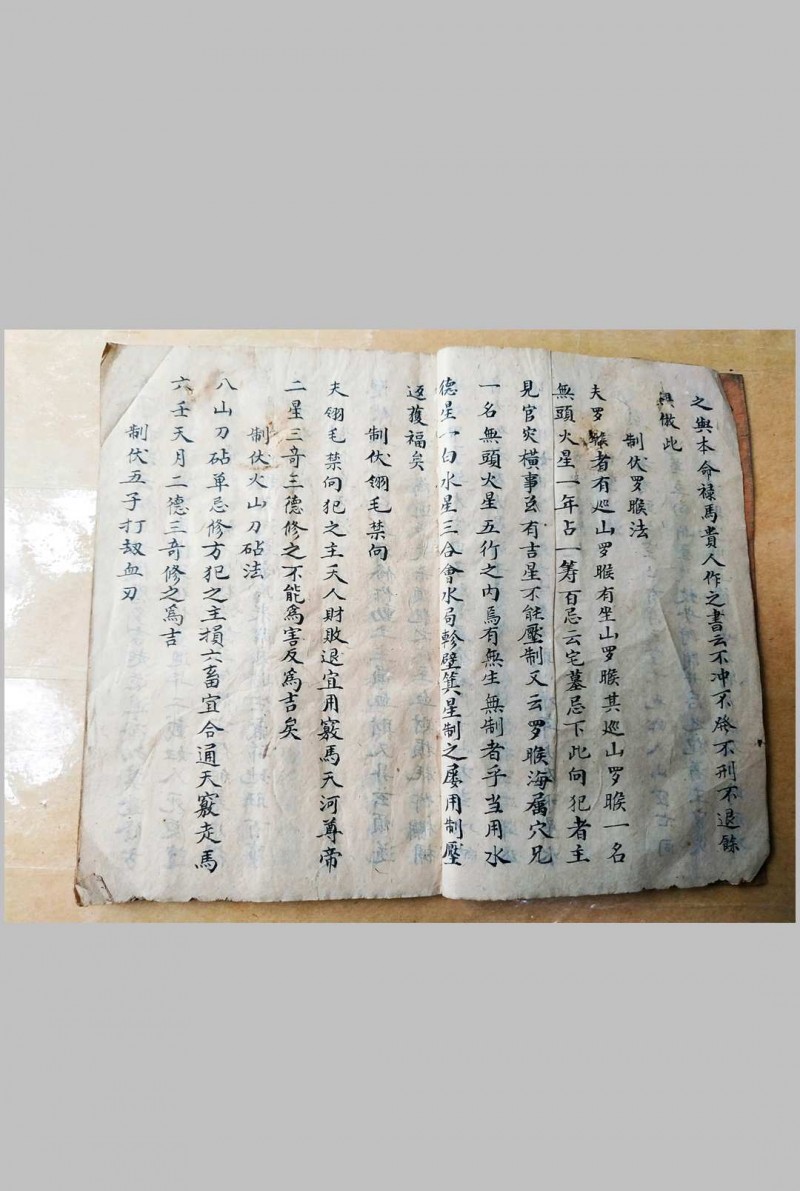 之與本命禄馬貴人作之書云不冲不降不刑不退餘
倣此
制伏罗睺法
夫罗睺者有巡山罗睺有坐山罗睺其巡山罗睺一名
無頭火星一年占一筹百忌云宅墓忌下此向犯者主
見官灾橫事玄有吉星不能壓制又云罗睺海属穴兄
一名無頭火星五行之內焉有無生無制者乎当用水
德星一白水星三合會水局軫壁箕星制之屡用制壓
返獲福矣
制伏翎毛禁向
夫翎毛禁向犯之主夭人財敗退宜用竅馬天河尊帝
二星三竒三德修之不能爲害反爲吉矣
制伏火山刀砧法
八山刀砧单忌修方犯之主損六畜宜合通天竅走馬
六壬天月二德三竒修之爲吉
制伏五子打刼血刃